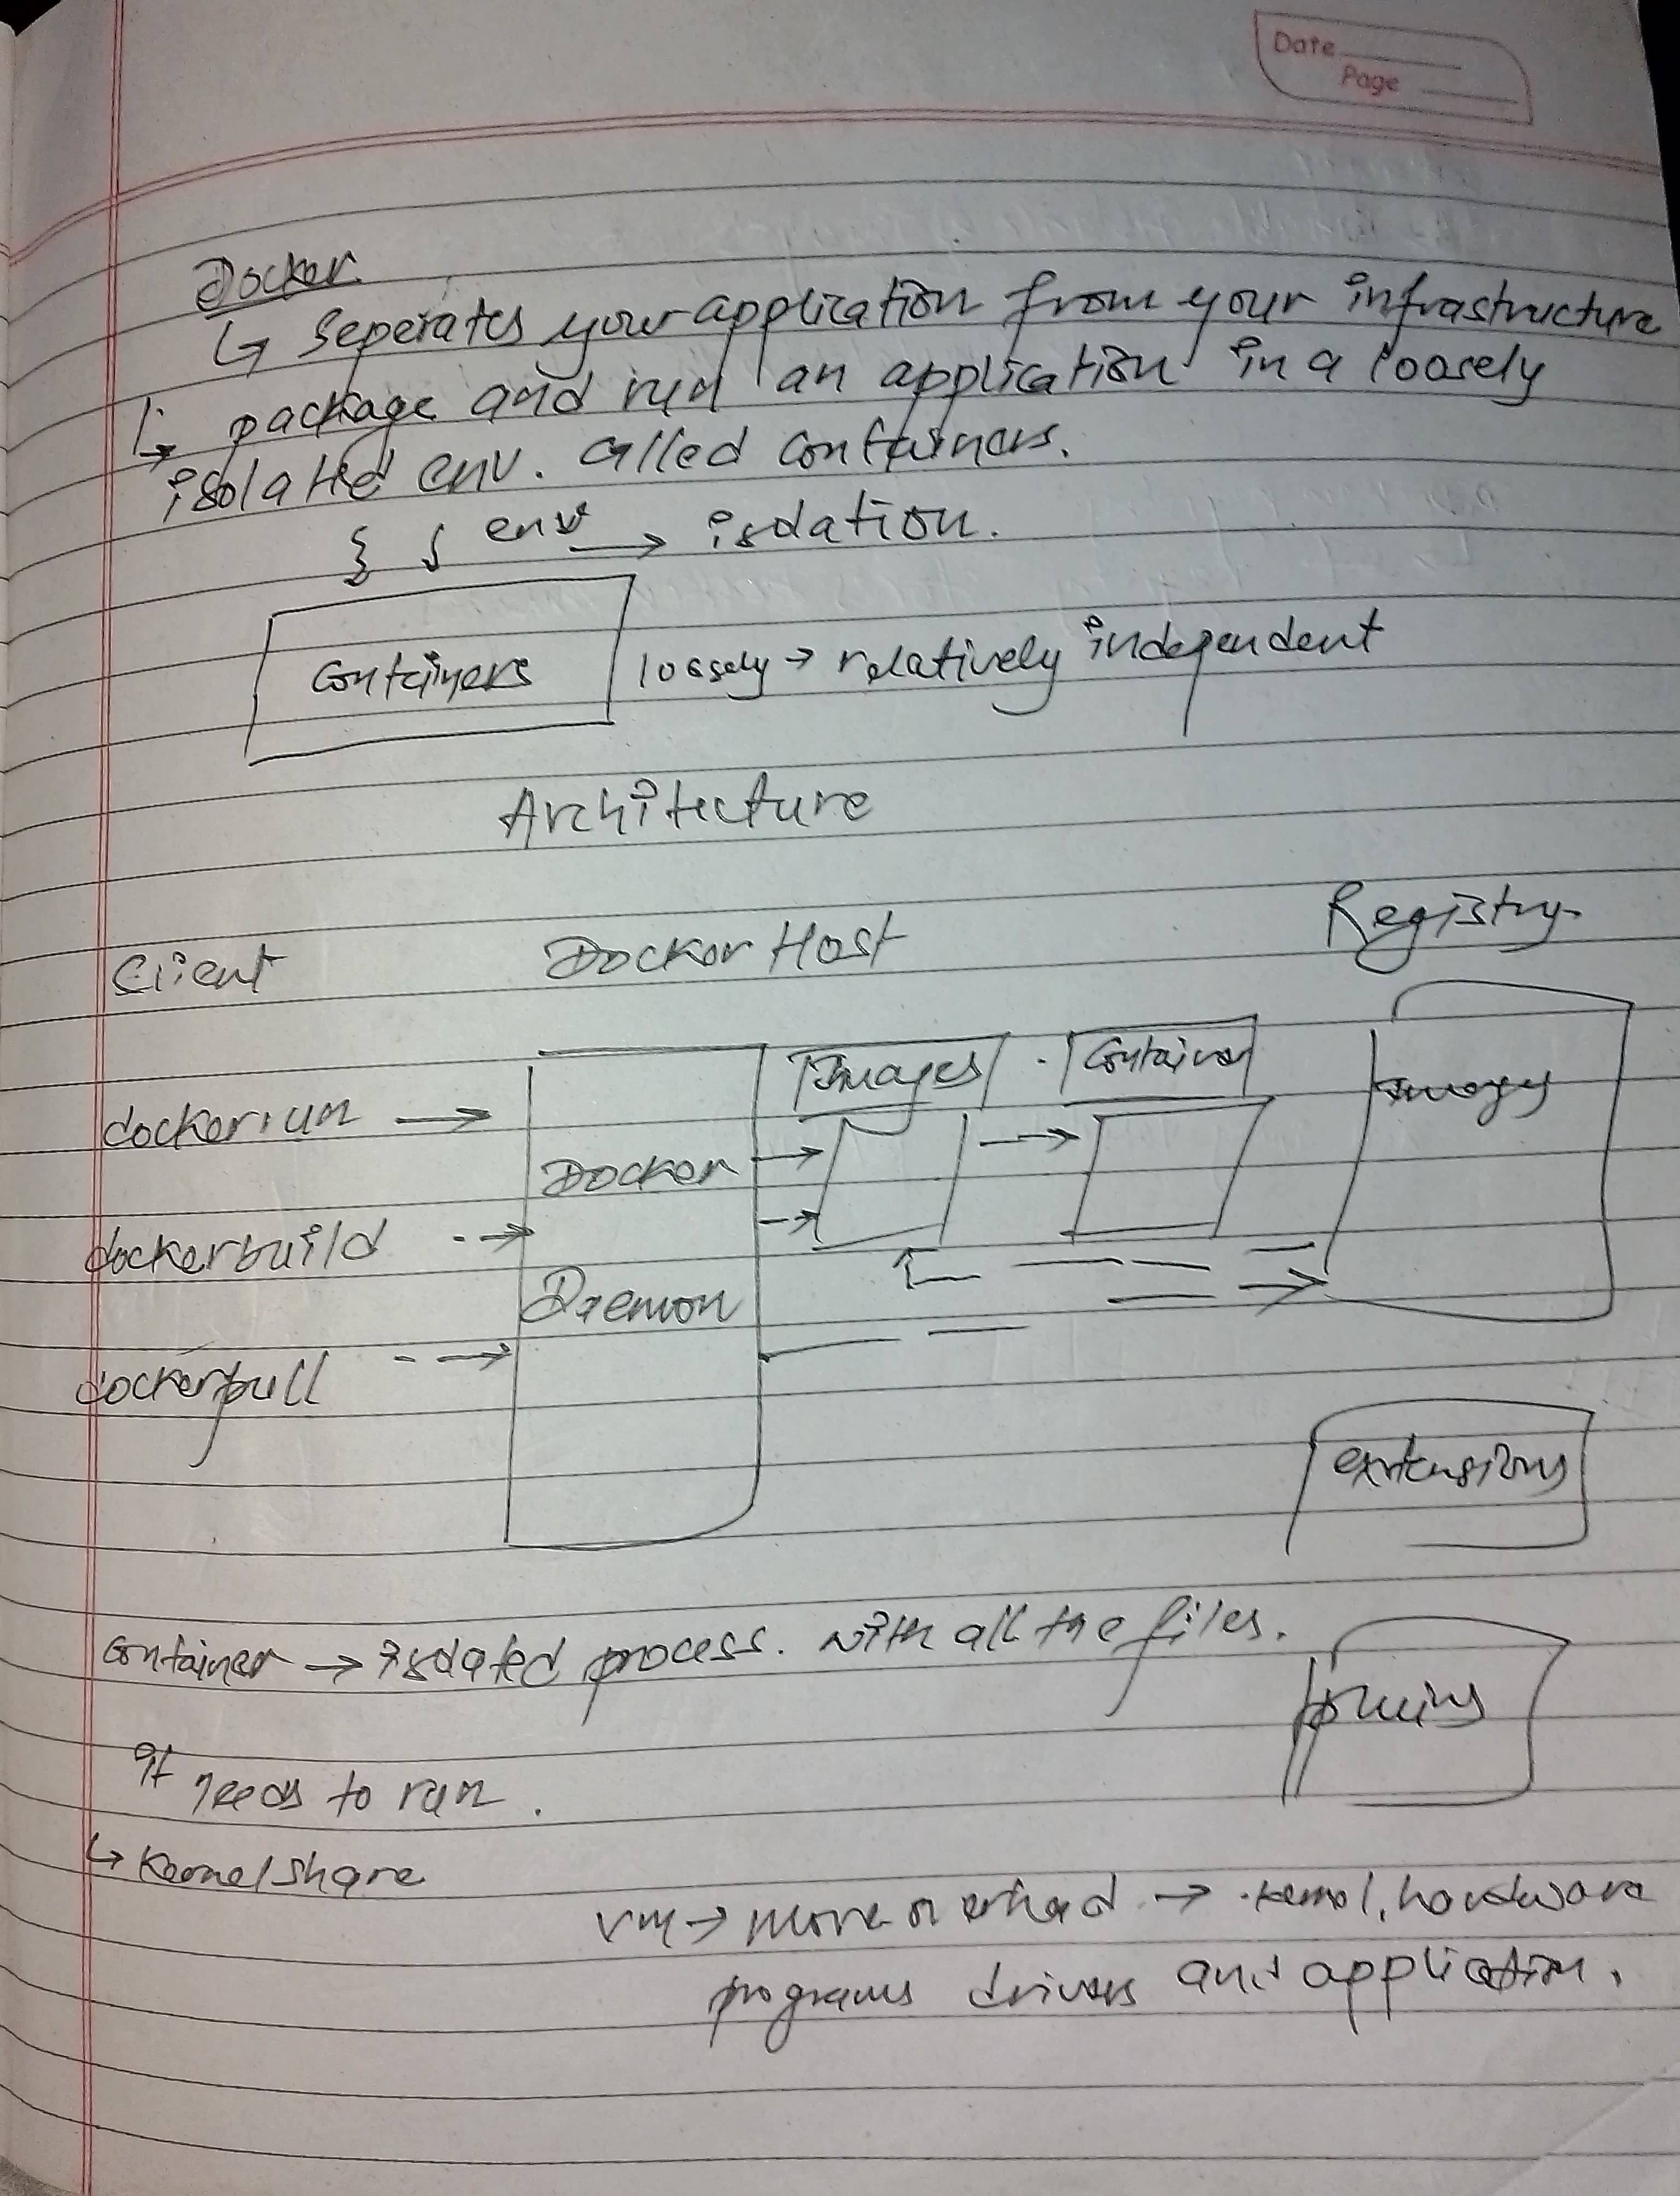 Date
Page
Docker
↳ Seperates your application from your infrastructure
↳ package and run an application in a loosely
isolated env. called containers.
env → isolation.
Containers
lossely → relatively independent
Architecture
Client
Docker Host
Registry
Images
Container
Images
dockerrun →
Docker
dockerbuild -→
Daemon
dockerpull -→
extensions
Container → isolated process. with all the files.
It needs to run.
↳ Kernel share
VM → more overhead → kernel, hardware
programs drivers and application.